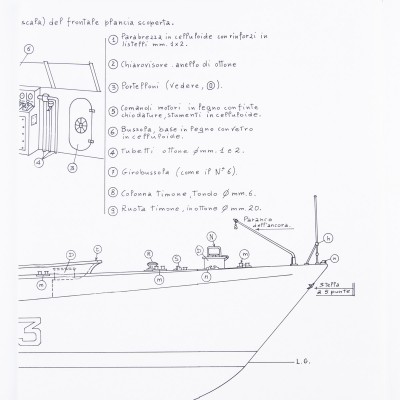 scala) del frontale plancia scoperta.
1 Parabrezza in celluloide con rinforzi in
listelli mm. 1x2.
2 Chiarovisore. anello di ottone
3 Portelloni (Vedere,).
5 Comandi motori in legno con finte
chiodature, stumenti in celluloide.
6 Bussola, base in legno con vetro
in celluloide.
4 Tubetti ottone ømm. 1 e 2.
7 Girobussola (come il N° 6).
8 Colonna Timone, Tondo ømm. 6.
7 Ruota timone, in ottone ømm. 20.
6
4
3
Paranco
dell'ancora.
N
D
m
m
n
h
n
stella
a 5 punte
3
L.G.